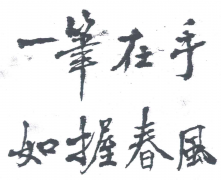 一筆在手
如握春風